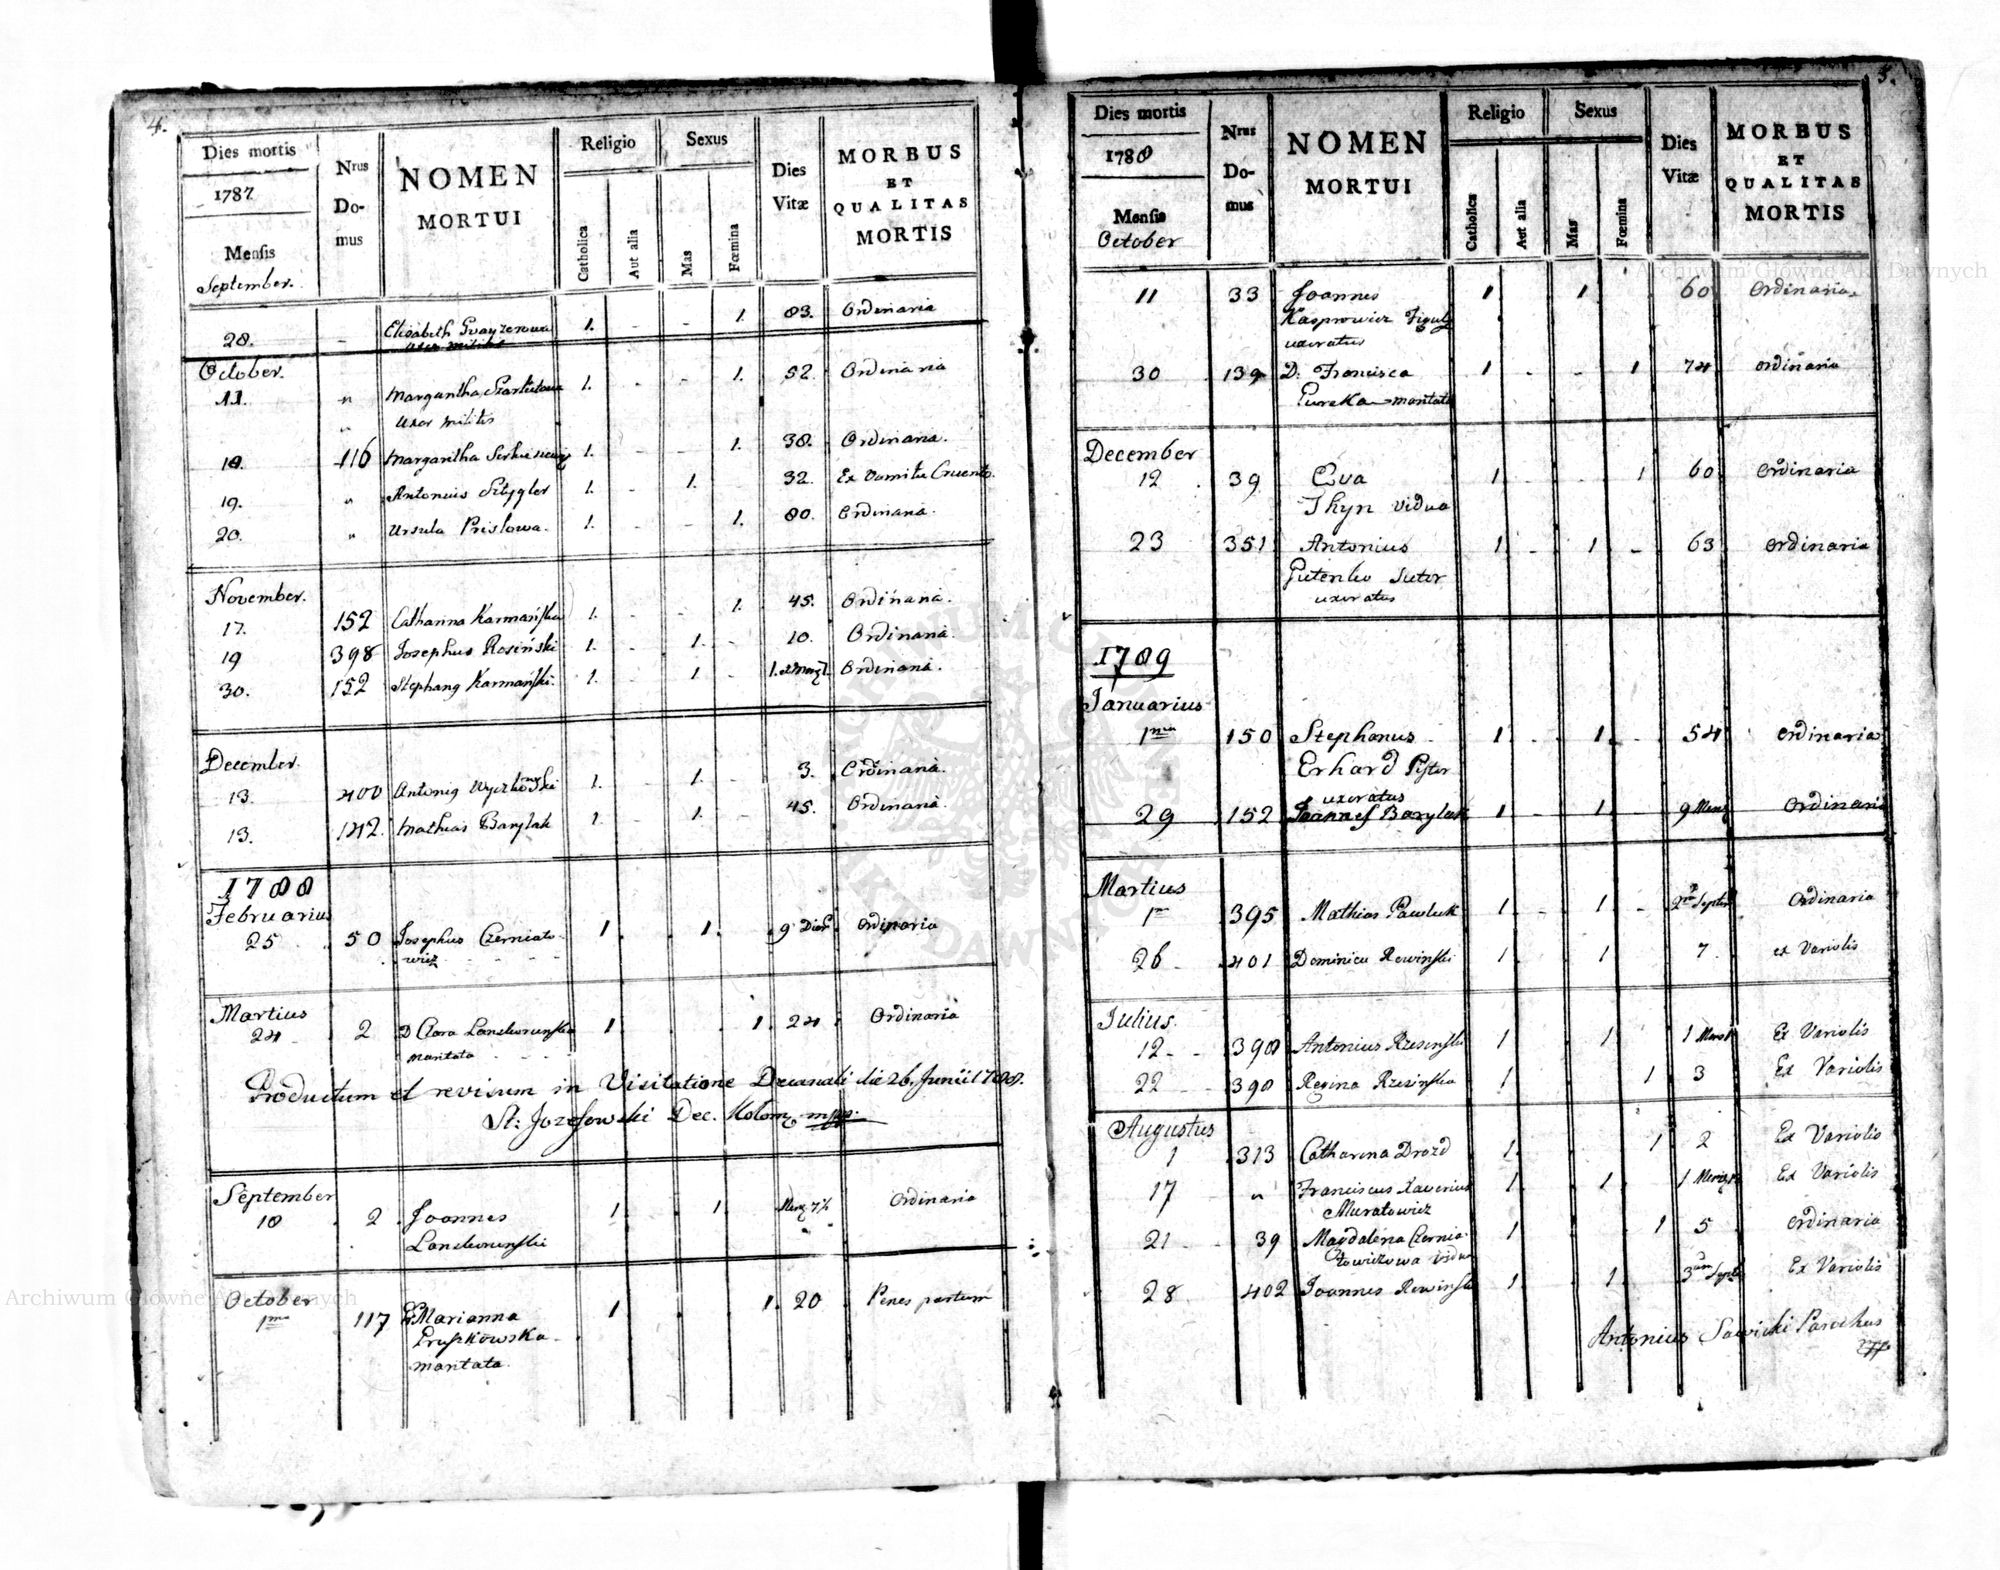 4.
Dies mortis
1787
Mensis
September.
Nrus
Do-
mus
NOMEN
MORTUI
Religio
Catholica
Aut alia
Sexus
Mas
Fœmina
Dies
Vitæ
MORBUS
ET
QUALITAS
MORTIS
28. - Elisabeth 1. - - 1. 83. Ordinaria
uxor militis
October.
11. " Margaritha 1. - - 1. 52. Ordinaria
" uxor militis
18. 116 Margaritha 1. 1. 38. Ordinaria.
19. " Antonius Sztygler 1. - 1. 32. Ex Vomitu Cruento.
20. " Ursula Prislowa. 1. - - 1. 80. Ordinaria.
November.
17. 152 Catharina Karmańska 1. - - 1. 45. Ordinaria.
19 398 Josephus Rosiński 1. - 1. - 10. Ordinaria.
30. 152 Stephanus Karmański. 1. - 1. - 1. Ordinaria.
December.
13. 400 Antonius 1. - 1. - 3. Ordinaria.
13. 142. Mathias Barylak 1. - 1. - 45. Ordinaria
1788
Februarius
25 50 Josephus Czerniato- 1. 1. 9 Dier Ordinaria
wicz
Martius
24 2 D Clara Lanckorunska 1 1. 24 Ordinaria
maritata
Productum et revisum in Visitatione Decanali die 26. Junii 1788.
St: Jozefowski Dec. Kolom mpp.
September
18 2 Joannes 1. 1. Ordinaria
Lanckorunski
October
1ma 117 Marianna 1 1. 20 Penes partum
Krupkowska
maritata.
5.
Dies mortis
1788
Mensis
October
Nrus
Do-
mus
NOMEN
MORTUI
Religio
Catholica
Aut alia
Sexus
Mas
Fœmina
Dies
Vitæ
MORBUS
ET
QUALITAS
MORTIS
11 33 Joannes 1 1 60 Ordinaria
Kasprowicz Figulus
uxoratus
30 139 D. Francisca 1 - - 1 74 Ordinaria
Eureka maritata
December
12 39 Eva 1 1 60 Ordinaria
Thyn vidua
23 351 Antonius 1 - 1 - 63 Ordinaria
Gutenko Sutor
uxoratus
1789
Januarius
1ma 150 Stephanus 1 - 1 - 54 Ordinaria
Erhard Pistor
uxoratus
29 152 Joannes Barylak 1 - 1 - 9 Mens Ordinaria
Martius
1ma 395 Mathias Pawluk 1 - 1 - Ordinaria
26 401 Dominicu Rewinski 1 1 7 ex Variolis
Julius
12 398 Antonius Rzesinski 1 1 1 Ex Variolis
22 398 Regina Rzesinska 1 1 3 Ex Variolis
Augustus
1 313 Catharina Drozd 1. 1 2 Ex Variolis
17 " Franciscus Xaverius 1. 1 1 Ex Variolis
Muratowicz
21 39 Magdalena Czernia- 1 1 5 Ordinaria
towiczowa vidua
28 402 Joannes Rewinski 1. 1. Ex Variolis
Antonius Sawicki Parochus
mpp
Archiwum Główne Akt Dawnych
Archiwum Główne Akt Dawnych
ARCHIWUM GŁÓWNE AKT DAWNYCH